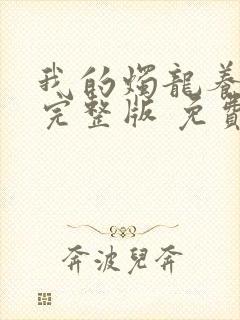 我的燭龍養
完整版 免費
奔波兒奔